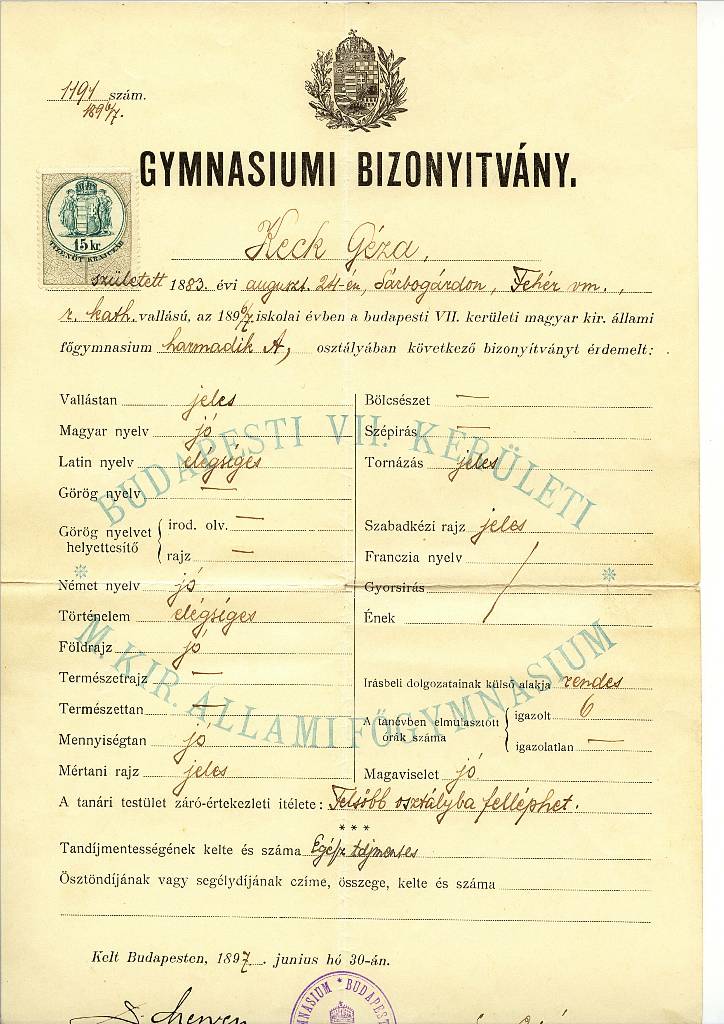 1191 szám.
1896/7.
GYMNASIUMI BIZONYITVÁNY.
15 kr
TIZENÖT KRAJCZÁR
Keck Géza,
született 1883. évi auguszt. 24-én, Sárbogárdon, Fehér vm.,
r. kath. vallású, az 1896/7 iskolai évben a budapesti VII. kerületi magyar kir. állami
főgymnasium harmadik A, osztályában következő bizonyítványt érdemelt:
BUDAPESTI VII. KERÜLETI
M. KIR. ÁLLAMI FŐGYMNASIUM
Vallástan jeles
Magyar nyelv jó
Latin nyelv elégséges
Görög nyelv —
Görög nyelvet helyettesítő
irod. olv. —
rajz —
Német nyelv jó
Történelem elégséges
Földrajz jó
Természetrajz —
Természettan —
Mennyiségtan jó
Mértani rajz jeles
Bölcsészet —
Szépirás —
Tornázás jeles
Szabadkézi rajz jeles
Franczia nyelv
Gyorsirás
Ének
Irásbeli dolgozatainak külső alakja rendes
A tanévben elmulasztott órák száma
igazolt 6
igazolatlan —
Magaviselet jó
A tanári testület záró-értekezleti itélete: Felsőbb osztályba felléphet.
* * *
Tandíjmentességének kelte és száma Egész tdjmentes
Ösztöndíjának vagy segélydíjának czíme, összege, kelte és száma
Kelt Budapesten, 1897. junius hó 30-án.
NASIUM * BUDAPEST